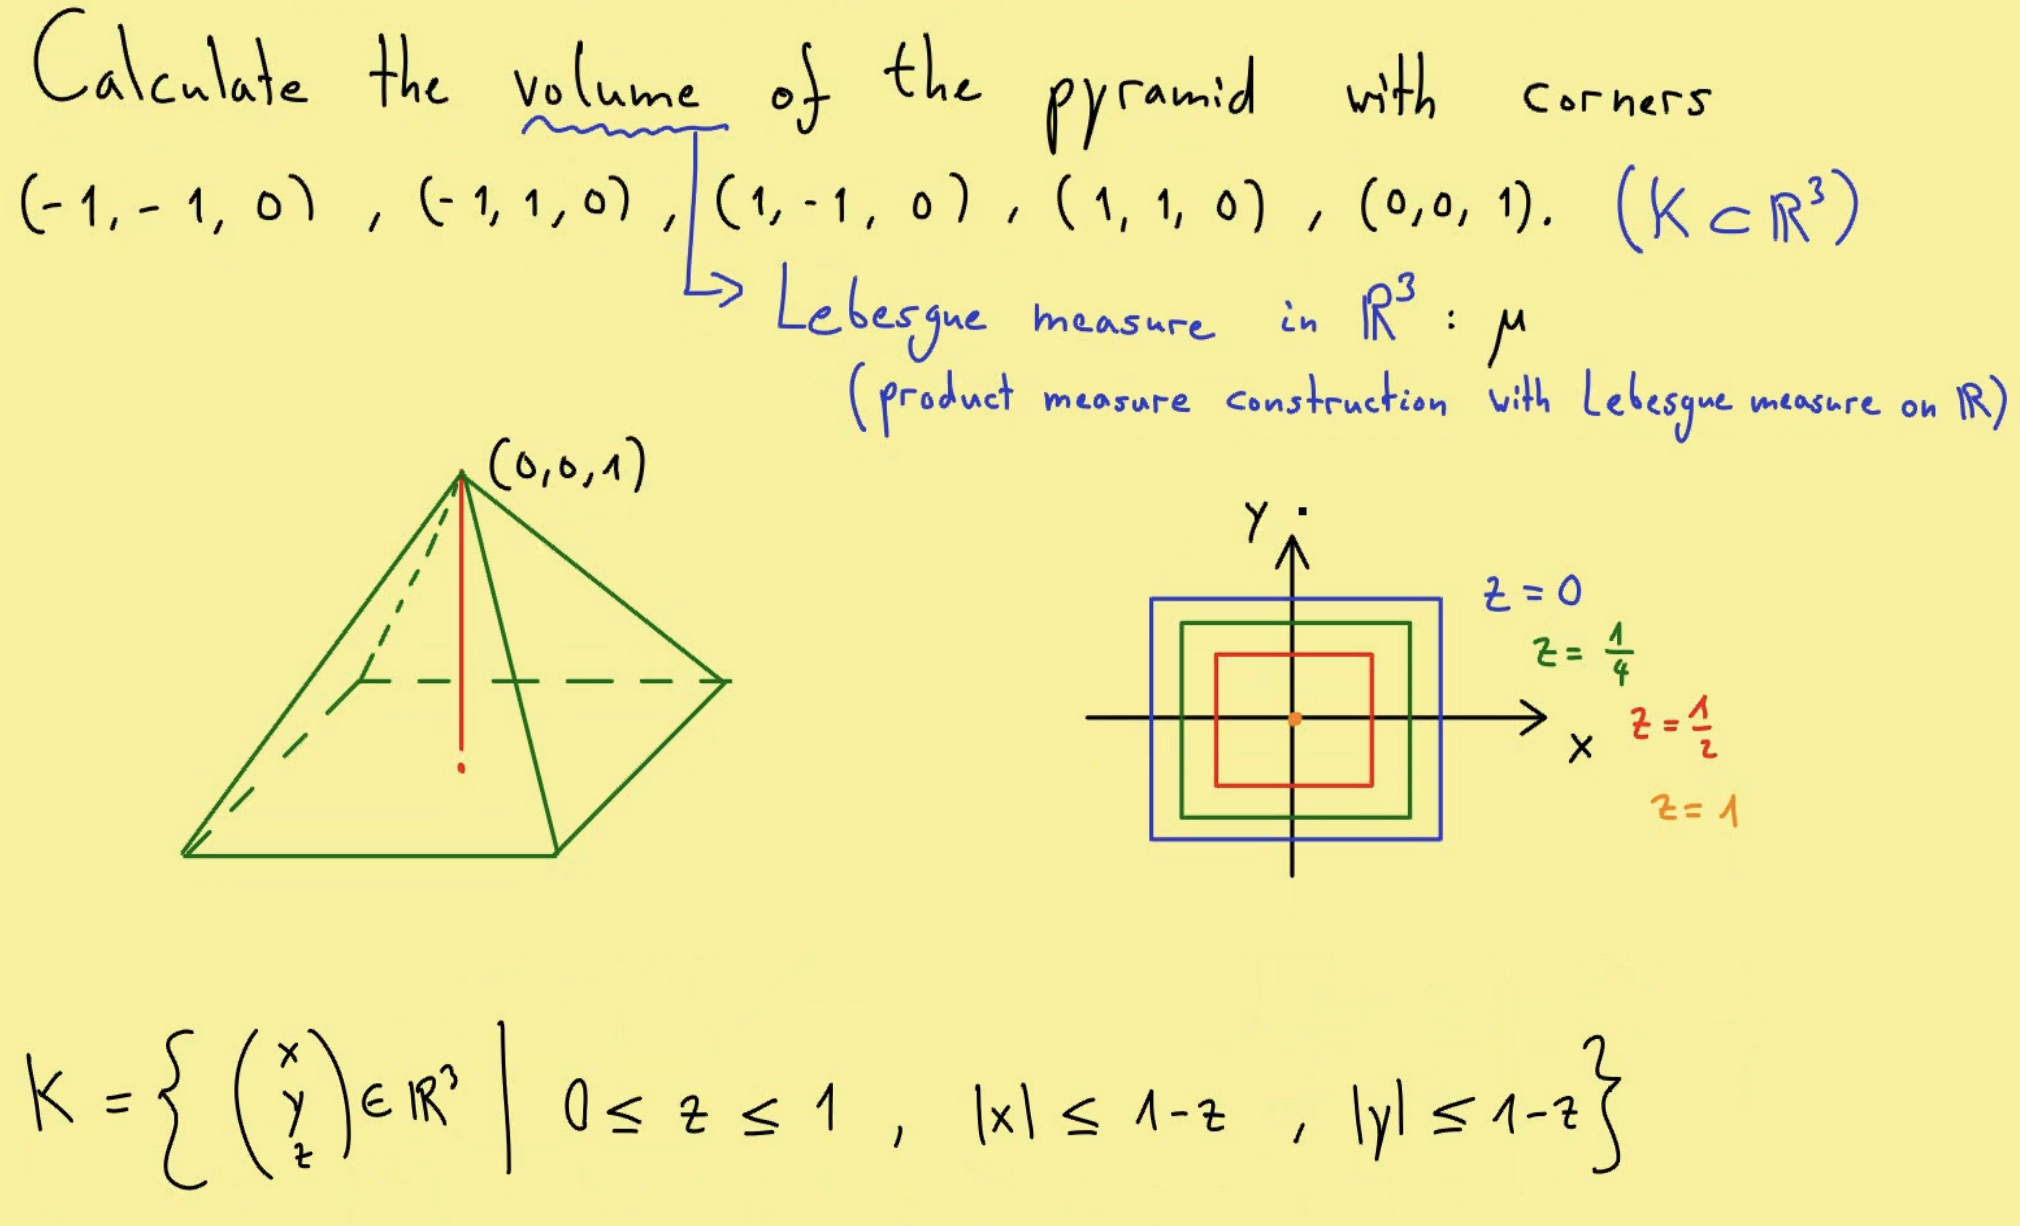 Calculate the volume of the pyramid with corners
(-1, -1, 0) , (-1, 1, 0) , (1, -1, 0) , (1, 1, 0) , (0, 0, 1). (K ⊂ ℝ³)
Lebesgue measure in ℝ³ : μ
(product measure construction with Lebesgue measure on ℝ)
(0,0,1)
y
z = 0
z = 1/4
z = 1/2
x
z = 1
K = { (x y z) ∈ ℝ³ | 0 ≤ z ≤ 1 , |x| ≤ 1-z , |y| ≤ 1-z }